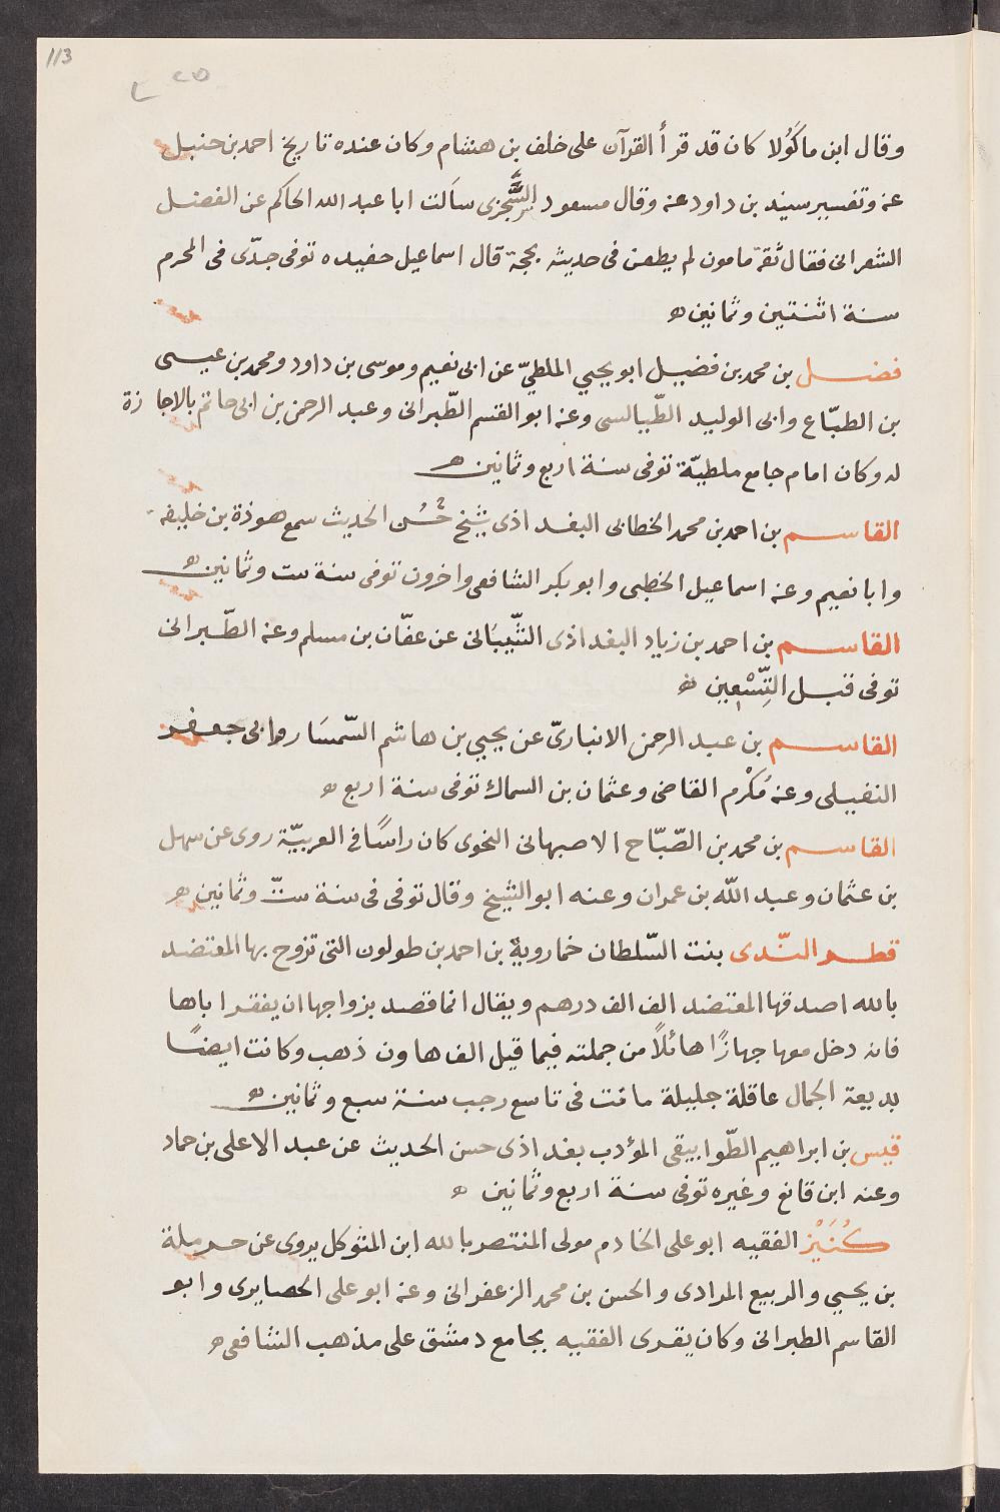 113
وقال ابن ماكَوُلا كان قد قرأ القرآن على خلف بن هشام وكان عنده تاريخ احمد بن حنبل
عنه وتفسير سنيد بن داود عنه وقال مسعود السِّجزى سآلت ابا عبد الله الحاكم عن الفضل
الشعرانى فقال ثقة مامون لم يطعن فى حديثه بحجة قال اسماعيل حفيده توفى جدّى فى المحرم
سنة اثنتين وثمانين ه
فضل بن محمد بن فضيل ابو يحيي الملطيّ عن ابى نعيم وموسى بن داود ومحمد بن عيسى
بن الطبّاع وابى الوليد الطّيالسى وعنه ابو القسم الطّبرانى وعبد الرحمن بن ابى حاتم بالاجازة
له وكان امام جامع ملطيّة توفى سنة اربع وثمانين ه
القاسم بن احمد بن محمد الخطابى البغداذى شيخ حُسُن الحديث سمع هوذة بن خليفه
وابا نعيم وعنه اسماعيل الخطبى وابو بكر الشافعى واخرون توفى سنة ست وثمانين ه
القاسم بن احمد بن زياد البغداذى الشّيبَانى عن عفّان بن مسلم وعنه الطّبرانى
توفى قبل التِّسْعِين ه
القاسم بن عبد الرحمن الانبارىّ عن يحيي بن هاشم السّمسَار وابى جعفر
النفيلى وعنه مُكْرم القاضى وعثمان بن السماك توفى سنة اربع ه
القاسم بن محمد بن الصّبّاح الاصبهانى النحوى كان راسًا فى العربيّة روى عن سهل
بن عثمان وعبد اللّه بن عمران وعنه ابو الشيخ وقال توفى فى سنة ستّ وثمانين ه
قطر النّدى بنت السّلطان خمارويه بن احمد بن طولون التى تزوج بها المعتضد
بالله اصدقها المعتضد الف الف درهم ويقال انما قصد بزواجها ان يفقر اباها
فانه دخل معها جهازًا هائلاً من جملته فيما قيل الف هاون ذهب وكانت ايضًا
بديعة الجمال عاقلة جليلة ماتت فى تاسع رجب سنة سبع وثمانين ه
قيس بن ابراهيم الطّوابيقى المؤدب بغداذى حسن الحديث عن عبد الاعلى بن حماد
وعنه ابن قانع وغيره توفى سنة اربع وثمانين ه
كُنَيْز الفقيه ابو على الخادم مولى المنتصر بالله ابن المتوكل يروى عن حرملة
بن يحيي والربيع المرادى والحسن بن محمد الزعفرانى وعنه ابو على الحصايرى وابو
القاسم الطبرانى وكان يقرى الفقيه بجامع دمشق على مذهب الشافعى ه